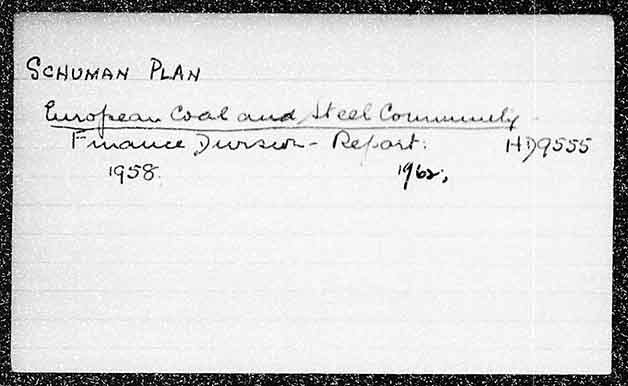 SCHUMAN PLAN
European Coal and Steel Community -
Finance Division - Report. HD9555
1958. 1962,